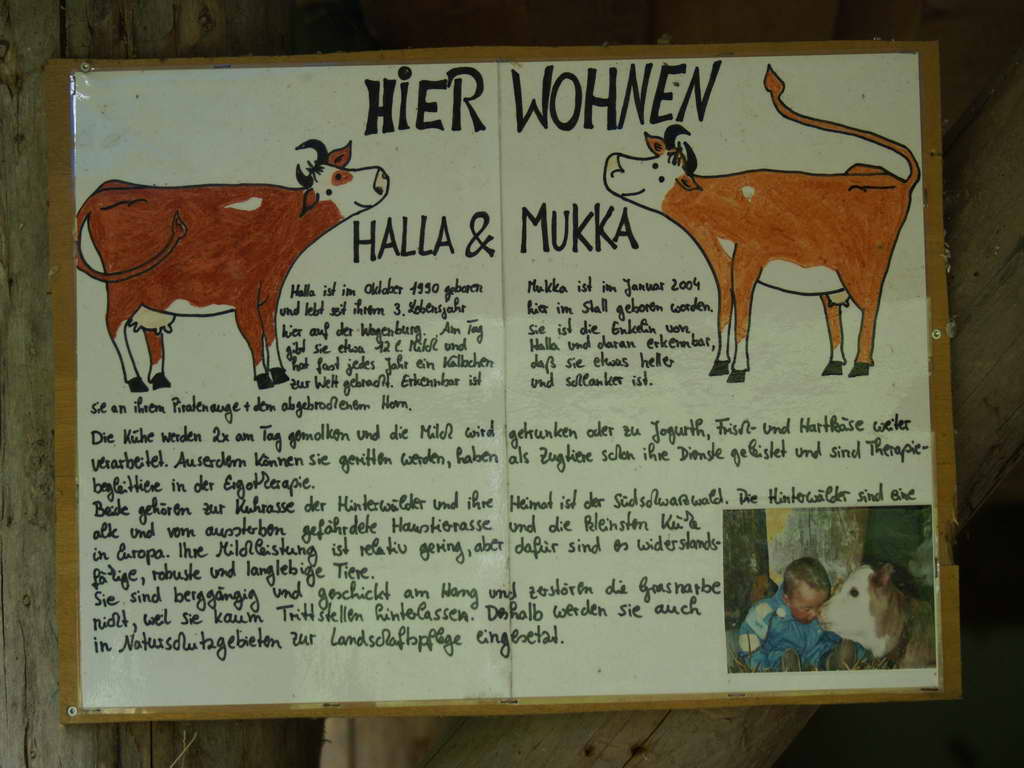 HiER WOHNEN
HALLA & MUKKA
Halla ist im Oktober 1990 geboren
und lebt seit ihrem 3. Lebensjahr
hier auf der Wagenburg. Am Tag
gibt sie etwa 12 l. Milch und
hat fast jedes Jahr ein Kälbchen
zur Welt gebracht. Erkennbar ist
sie an ihrem Piratenauge + dem abgebrochenem Horn.
Mukka ist im Januar 2004
hier im Stall geboren worden.
sie ist die Enkelin von
Halla und daran erkennbar,
daß sie etwas heller
und schlanker ist.
Die Kühe werden 2x am Tag gemolken und die Milch wird getrunken oder zu Jogurth, Frisch- und Hartkäse weiter
verarbeitet. Auserdem können sie geritten werden, haben als Zugtiere schon ihre Dienste geleistet und sind Therapie-
begleittiere in der Ergotherapie.
Beide gehören zur Kuhrasse der Hinterwälder und ihre Heimat ist der Südschwarzwald. Die Hinterwälder sind eine
alte und vom aussterben gefährdete Haustierrasse und die kleinsten Kühe
in Europa. Ihre Milchleistung ist relativ gering, aber dafür sind es widerstands-
fähige, robuste und langlebige Tiere.
Sie sind berggängig und geschickt am Hang und zerstören die Grasnarbe
nicht, weil sie kaum Trittstellen hinterlassen. Deshalb werden sie auch
in Naturschutzgebieten zur Landschaftspflege eingesetzt.